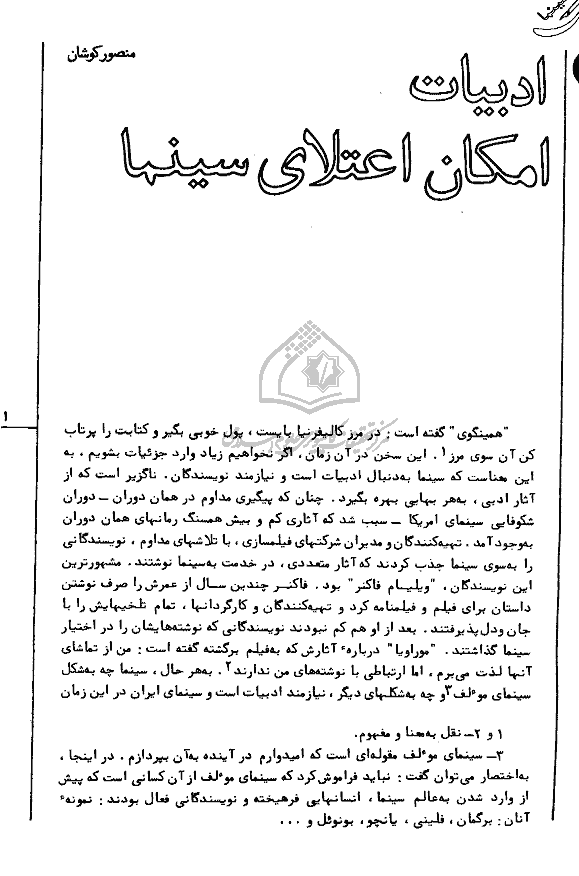 سینما
منصور کوشان
ادبیات
امکان اعتلای سینما
۱
"همینگوی" گفته است: در مرز کالیفرنیا بایست، پول خوبی بگیر و کتابت را پرتاب
کن آن سوی مرز۱. این سخن در آن زمان، اگر نخواهیم زیاد وارد جزئیات بشویم. به
این معناست که سینما به‌دنبال ادبیات است و نیازمند نویسندگان. ناگزیر است که از
آثار ادبی، به‌هر بهایی بهره بگیرد. چنان که پیگیری مداوم در همان دوران ـ دوران
شکوفایی سینمای امریکا ـ سبب شد که آثاری کم و بیش همسنگ رمانهای همان دوران
به‌وجود آمد. تهیه‌کنندگان و مدیران شرکتهای فیلمسازی، با تلاشهای مداوم، نویسندگانی
را به‌سوی سینما جذب کردند که آثار متعددی، در خدمت به‌سینما نوشتند. مشهورترین
این نویسندگان، "ویلیام فاکنر" بود. فاکنر چندین سال از عمرش را صرف نوشتن
داستان برای فیلم و فیلمنامه کرد و تهیه‌کنندگان و کارگردانها، تمام تلخیهایش را با
جان و دل پذیرفتند. بعد از او هم کم نبودند نویسندگانی که نوشته‌هایشان را در اختیار
سینما گذاشتند. "موراویا" دربارهٔ آثارش که به‌فیلم برگشته گفته است: من از تماشای
آنها لذت می‌برم، اما ارتباطی با نوشته‌های من ندارند۲. به‌هر حال، سینما چه به‌شکل
سینمای موءلف۳ و چه به‌شکلهای دیگر، نیازمند ادبیات است و سینمای ایران در این زمان
۱ و ۲ـ نقل به‌معنا و مفهوم.
۳ـ سینمای موءلف مقوله‌ای است که امیدوارم در آینده به‌آن بپردازم. در اینجا،
به‌اختصار می‌توان گفت: نباید فراموش کرد که سینمای موءلف از آن کسانی است که پیش
از وارد شدن به‌عالم سینما، انسانهایی فرهیخته و نویسندگانی فعال بودند: نمونهٔ
آنان: برگمان، فلینی، یانچو، بونوئل و ...